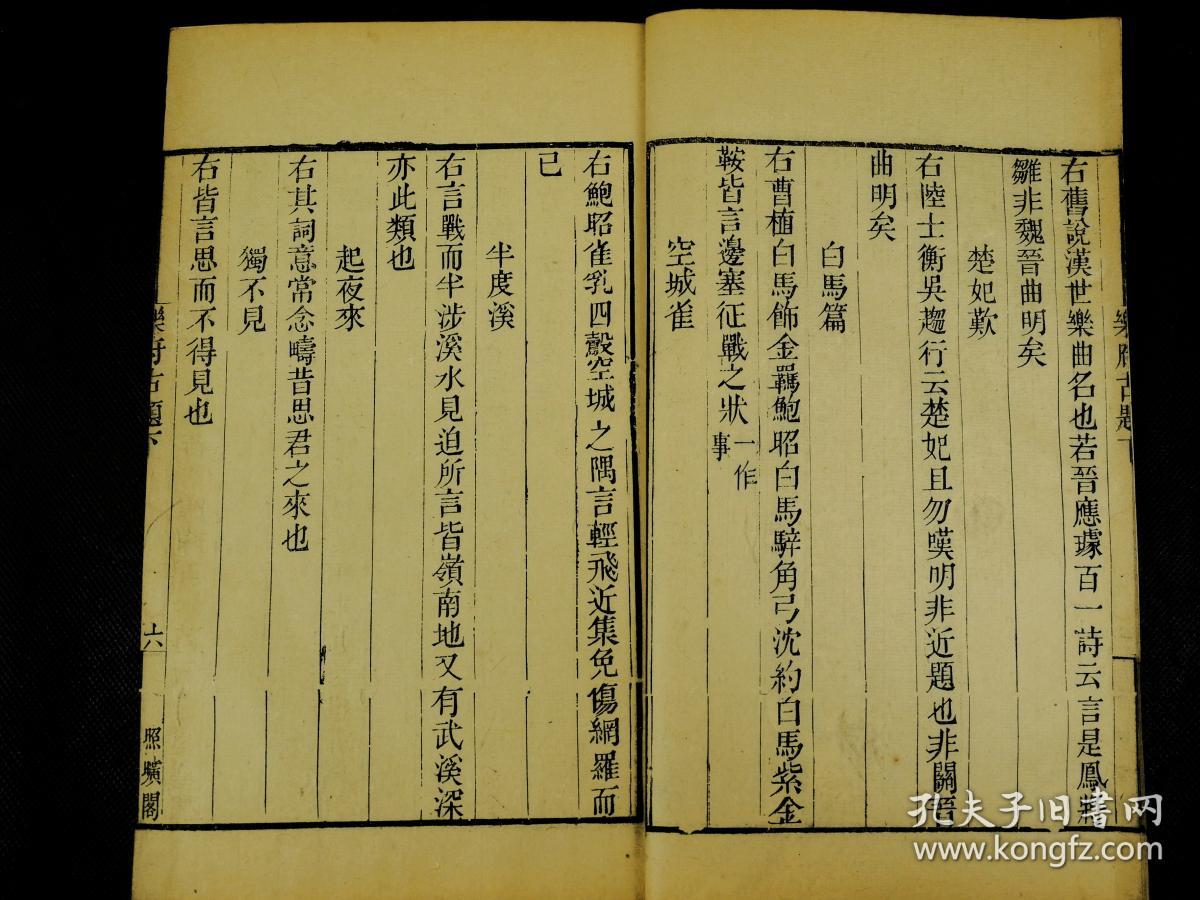 右舊說漢世樂曲名也若晉應璩百一詩云言是鳳將
雛非魏晉曲明矣
楚妃歎
右陸士衡吳趨行云楚妃且勿嘆明非近題也非關晉
曲明矣
白馬篇
右曹植白馬飾金羈鮑昭白馬騂角弓沈約白馬紫金
鞍皆言邊塞征戰之狀一作事
空城雀
右鮑昭雀乳四鷇空城之隅言輕飛近集免傷網羅而
已
半度溪
右言戰而半涉溪水見迫所言皆嶺南地又有武溪深
亦此類也
起夜來
右其詞意常念疇昔思君之來也
獨不見
右皆言思而不得見也
樂府古題下
六
照曠閣
樂府古題下
孔夫子旧书网
www.kongfz.com